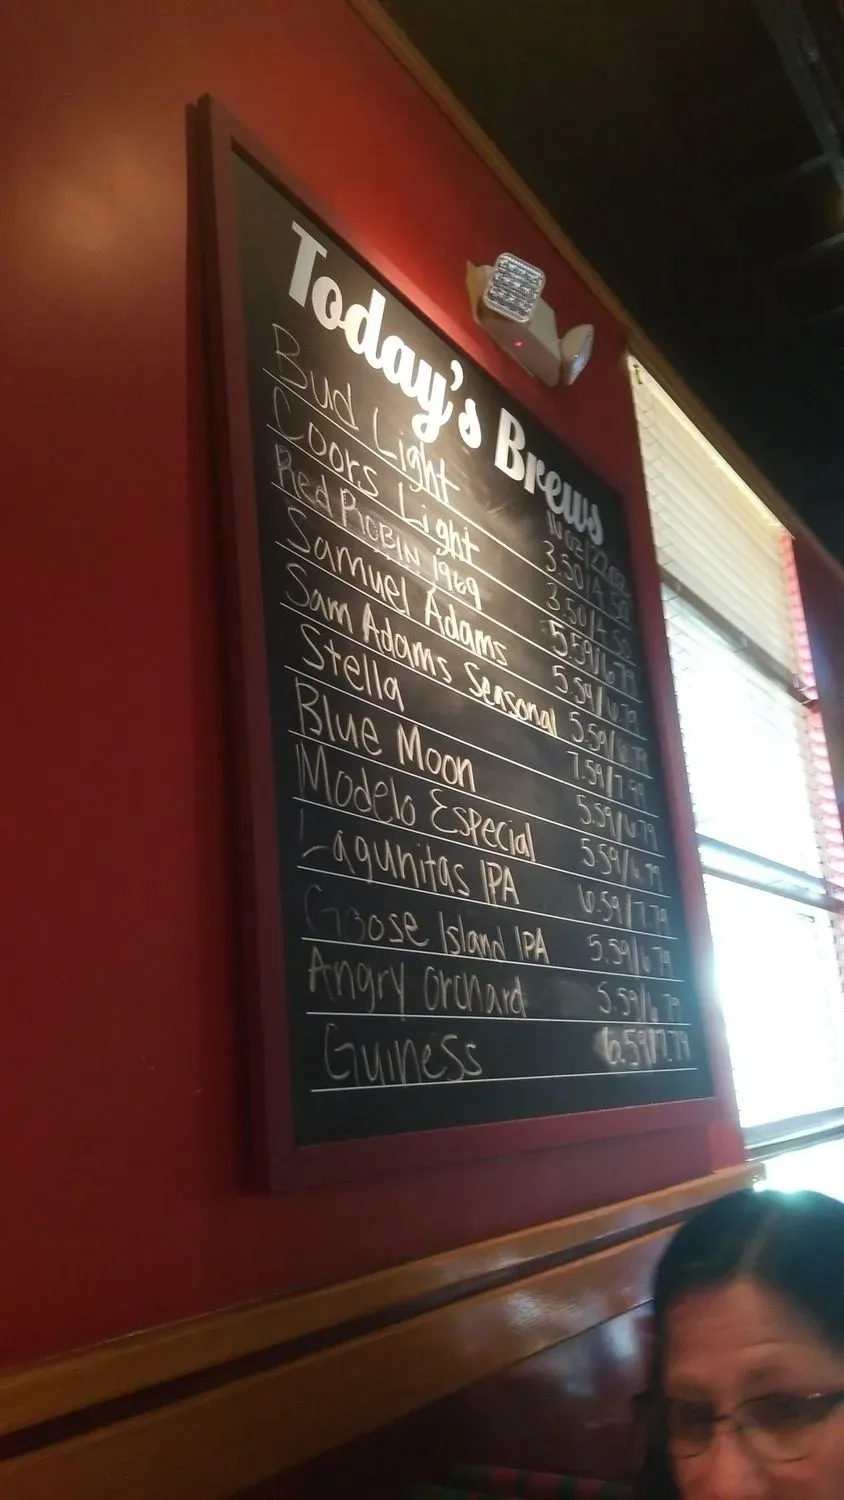 Today's Brews
16 oz/22 oz
Bud Light 3.50/4.50
Coors Light 3.50/4.50
Red ROBIN 1969 5.59/6.79
Samuel Adams 5.59/6.79
Sam Adams Seasonal 5.59/6.79
Stella 7.59/7.99
Blue Moon 5.59/6.79
Modelo Especial 5.59/6.79
Lagunitas IPA 6.59/7.79
Goose Island IPA 5.59/6.79
Angry Orchard 5.59/6.79
Guiness 6.59/7.79